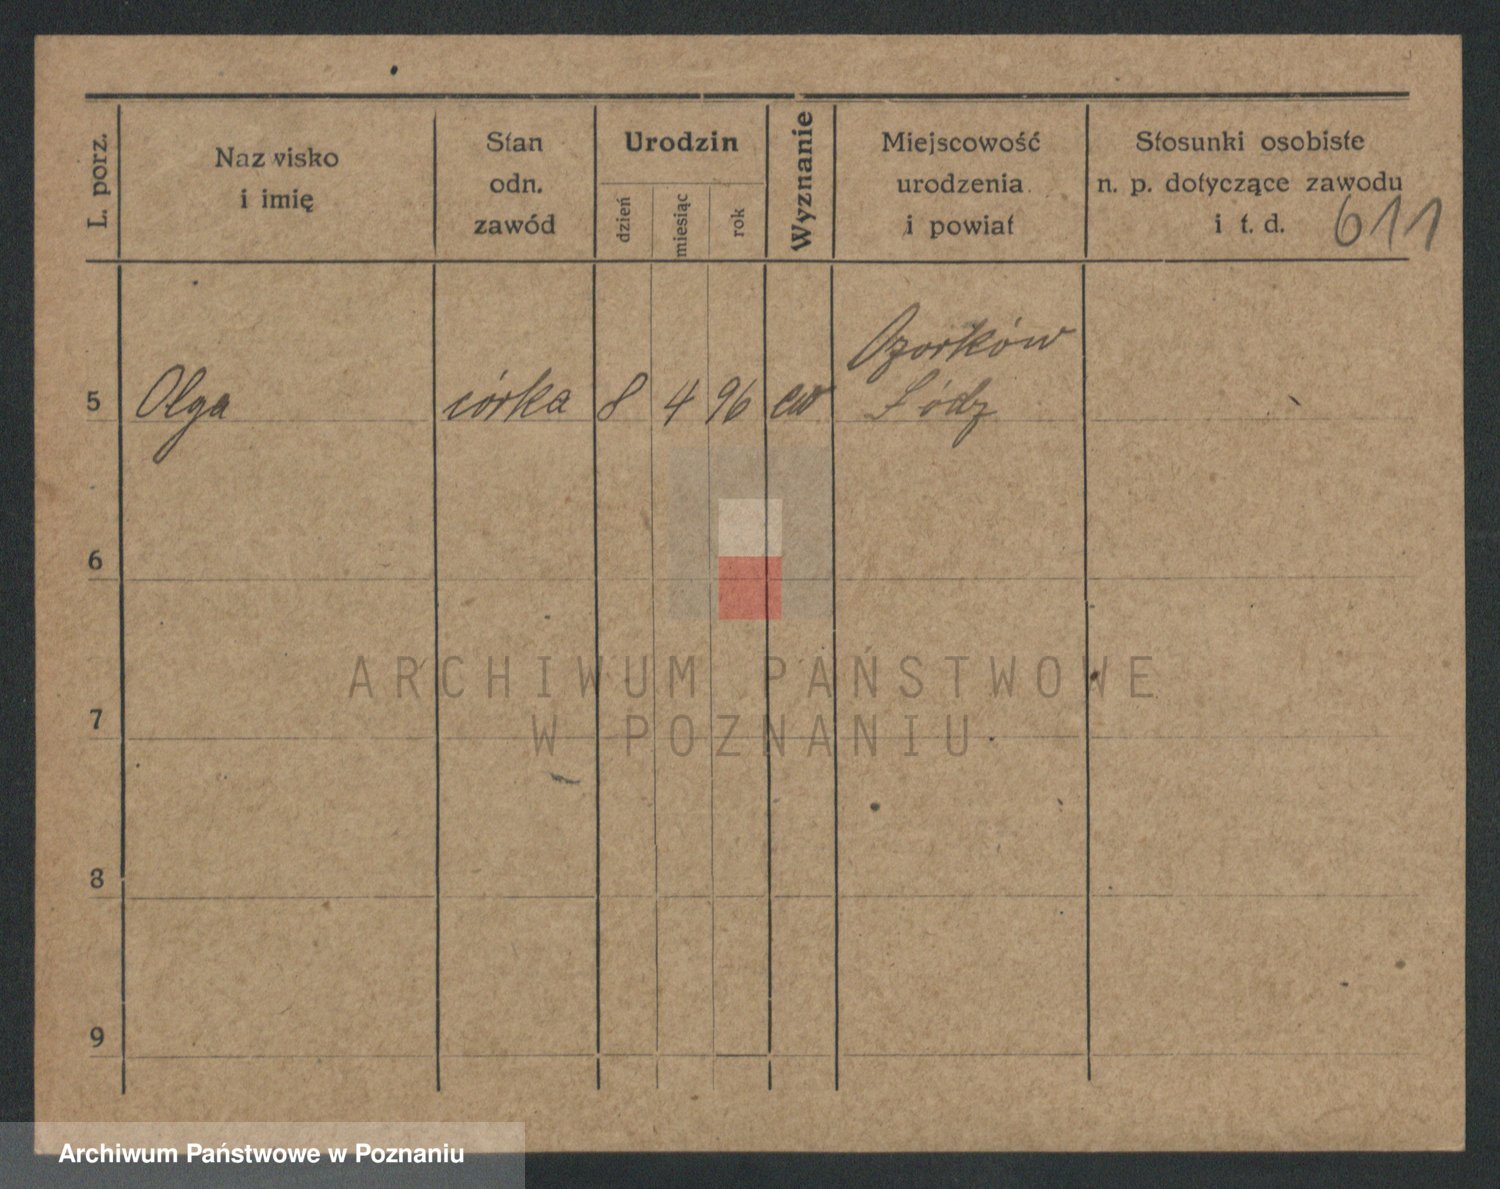 L. porz.
Nazwisko
i imię
Stan
odn.
zawód
Urodzin
dzień
miesiąc
rok
Wyznanie
Miejscowość
urodzenia
i powiat
Stosunki osobiste
n. p. dotyczące zawodu
i t. d.
611
Ozorków
5 Olga córka 8 4 96 ew Łódz
6
7
8
9
ARCHIWUM PAŃSTWOWE
W POZNANIU
Archiwum Państwowe w Poznaniu